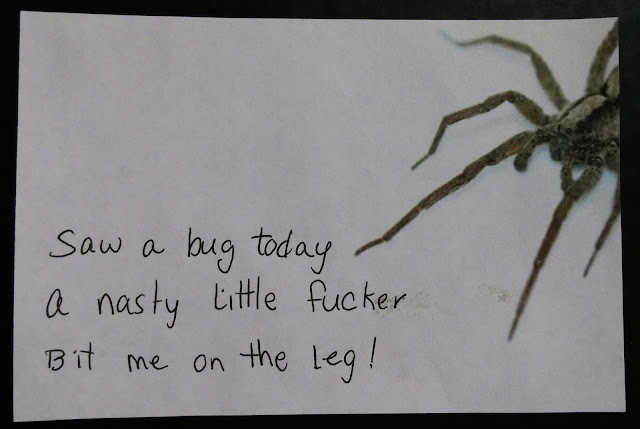 Saw a bug today
a nasty little fucker
Bit me on the leg!